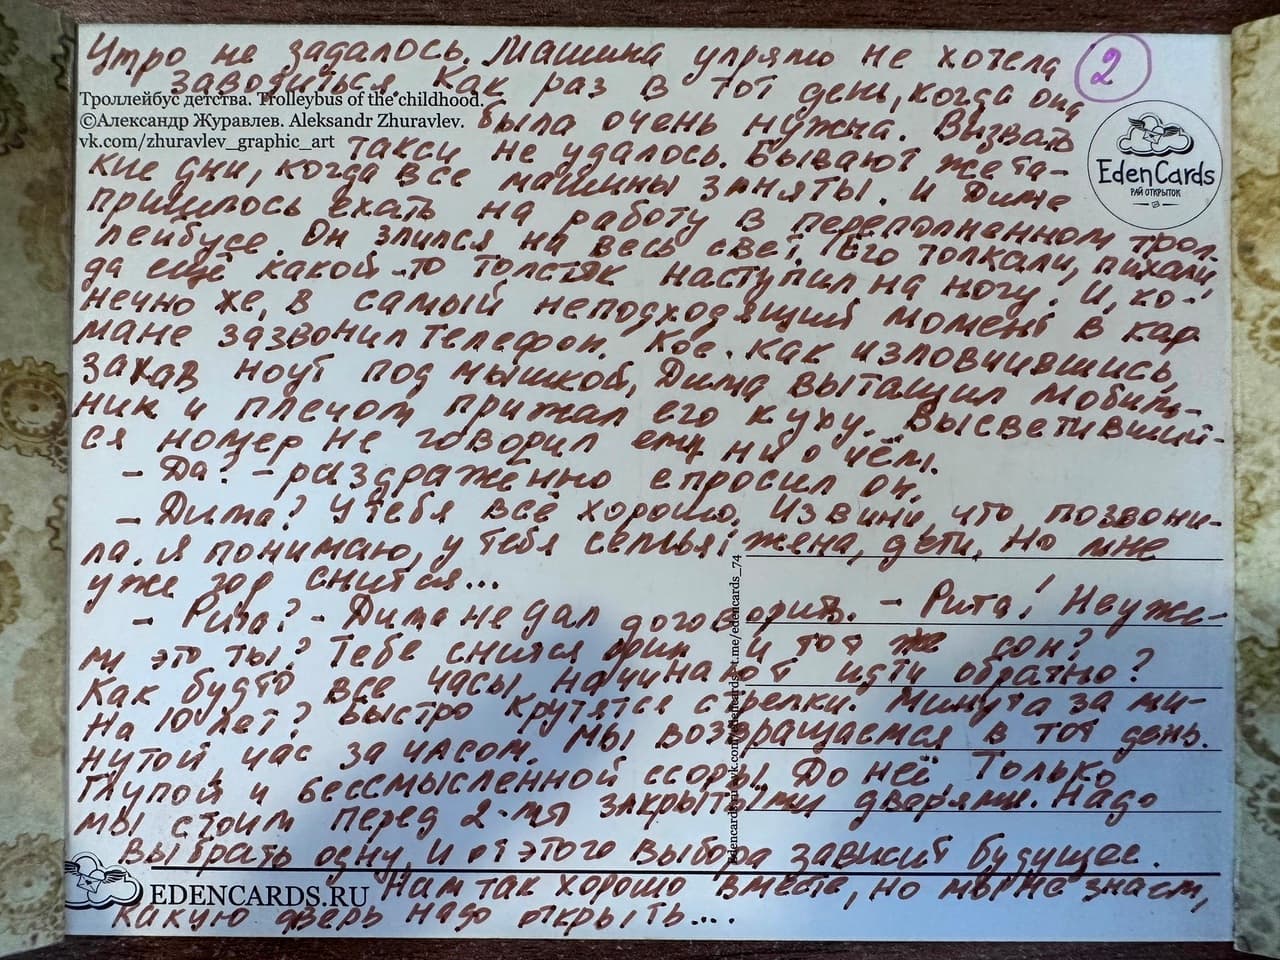 Утро не задалось. Машина упрямо не хотела
2
заводиться. Как раз в тот день, когда она
Троллейбус детства. Trolleybus of the childhood.
©Александр Журавлев. Aleksandr Zhuravlev.
была очень нужна. Вызвать
vk.com/zhuravlev_graphic_art
такси не удалось. Бывают же та-
EdenCards
РАЙ ОТКРЫТОК
кие дни, когда все машины заняты. И Диме
пришлось ехать на работу в переполненном трол-
лейбусе. Он злился на весь свет. Его толкали, пихали,
да ещё какой-то толстяк наступил на ногу! И, ко-
нечно же, в самый неподходящий момент в кар-
мане зазвонил телефон. Кое-как изловчившись,
зажав ноут под мышкой, Дима вытащил мобиль-
ник и плечом прижал его к уху. Высветивший-
ся номер не говорил ему ни о чём.
- Да? - раздражённо спросил он.
- Дима? У тебя всё хорошо. Извини, что позвони-
ла. Я понимаю, у тебя семья: жена, дети, но мне
уже год снится...
- Рита? - Дима не дал договорить. - Рита! Неуже-
ли это ты? Тебе снится один и тот же сон?
Как будто все часы начинают идти обратно?
На 10 лет? Быстро крутятся стрелки. Минута за ми-
нутой, час за часом. Мы возвращаемся в тот день.
Глупой и бессмысленной ссоры. До неё. Только
мы стоим перед 2-мя закрытыми дверями. Надо
выбрать одну, и от этого выбора зависит будущее.
Нам так хорошо вместе, но мы не знаем,
какую дверь надо открыть....
EDENCARDS.RU
Edencards.ru vk.com/edencards t.me/edencards_74